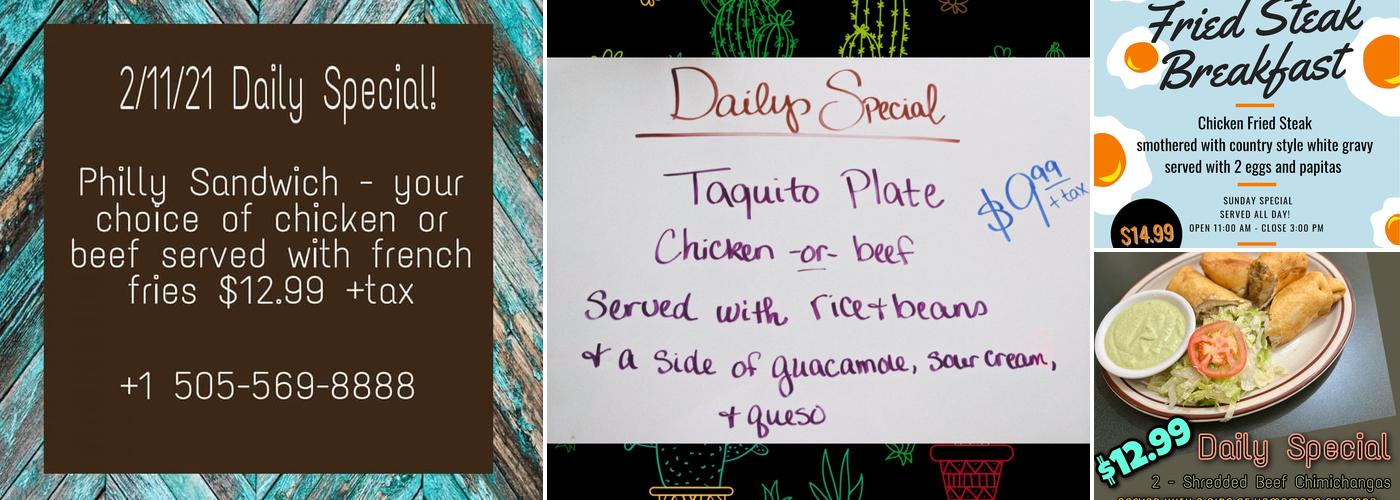 2/11/21 Daily Special!
Philly Sandwich - your
choice of chicken or
beef served with french
fries $12.99 +tax
+1 505-569-8888
Dailys Special
Taquito Plate
$9.99
+tax
Chicken -or- beef
Served with rice + beans
+ a side of guacamole, sour cream,
+ queso
Fried Steak
Breakfast
Chicken Fried Steak
smothered with country style white gravy
served with 2 eggs and papitas
SUNDAY SPECIAL
SERVED ALL DAY!
OPEN 11:00 AM - CLOSE 3:00 PM
$14.99
$12.99
Daily Special
2 - Shredded Beef Chimichangas